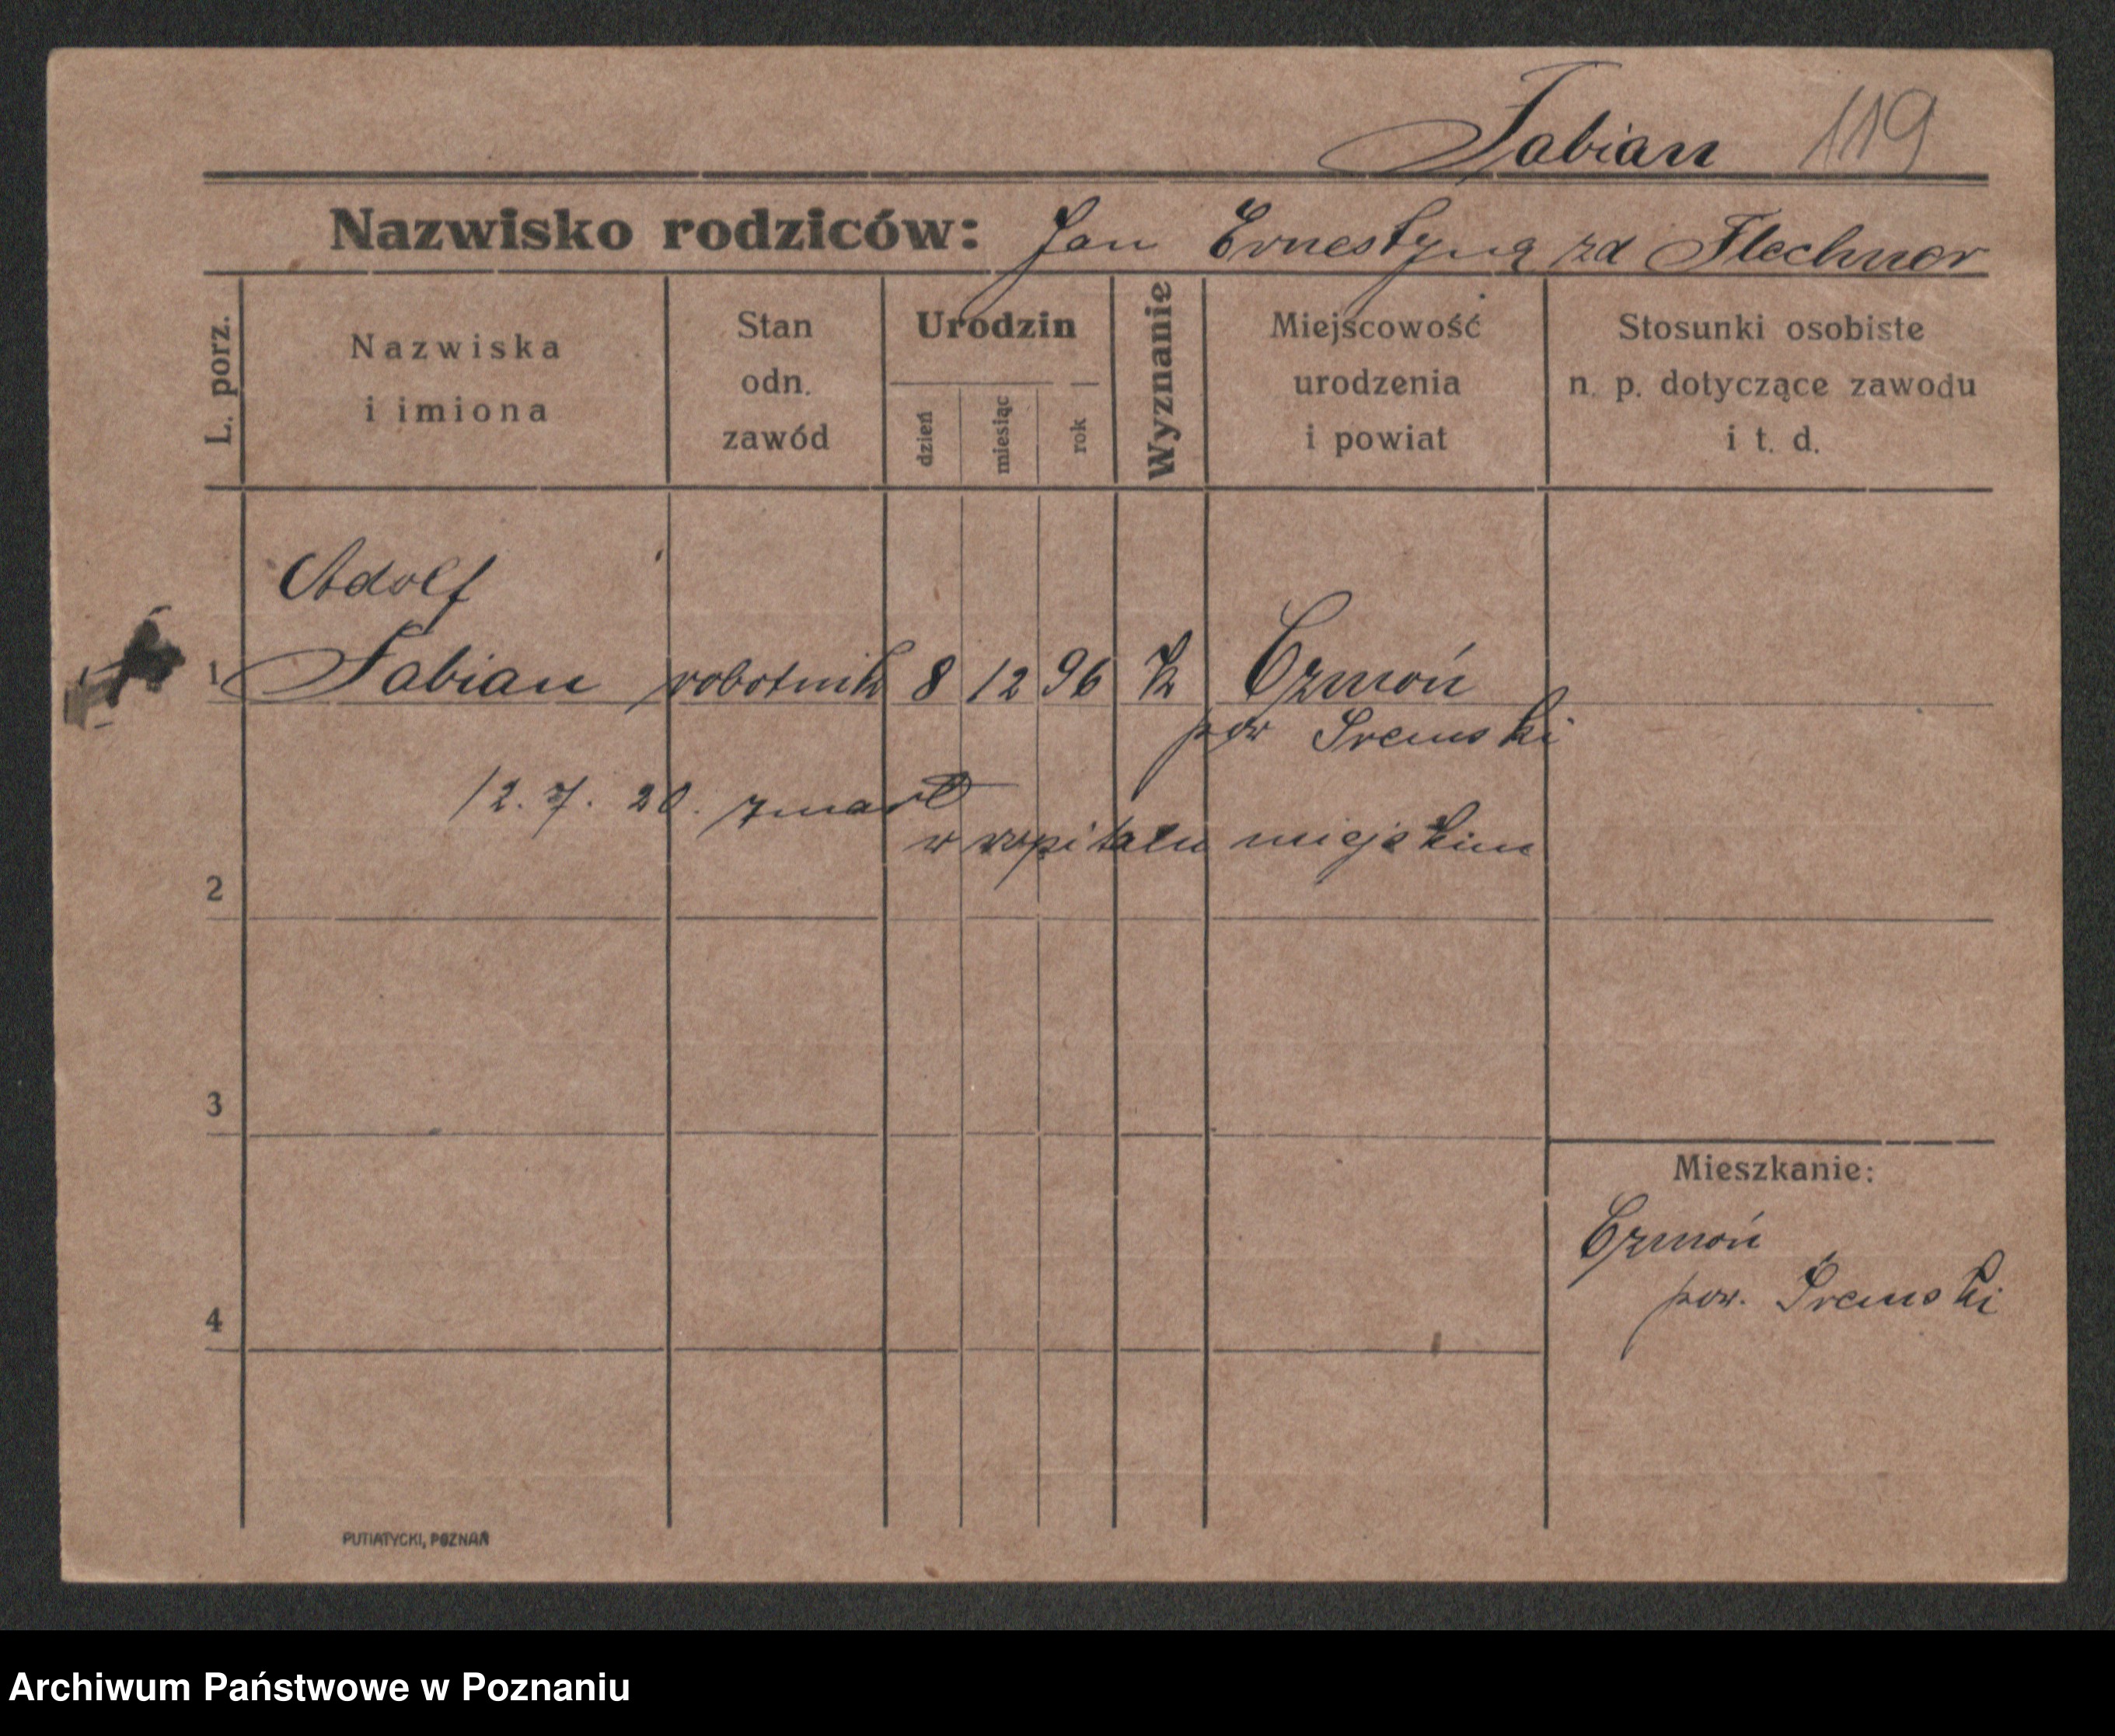 Fabian 119
Nazwisko rodziców: Jan Ernestyna zd Flechner
L. porz.
Nazwiska
i imiona
Stan
odn.
zawód
Urodzin
dzień
miesiąc
rok
Wyznanie
Miejscowość
urodzenia
i powiat
Stosunki osobiste
n. p. dotyczące zawodu
i t. d.
Adolf
1 Fabian robotnik 8 12 96 k Czmoń
pow Sremski
12. 7. 20. zmarł
w szpitalu miejskim
2
3
Mieszkanie:
Czmoń
pow. Sremski
4
PUTIATYCKI, POZNAŃ
Archiwum Państwowe w Poznaniu